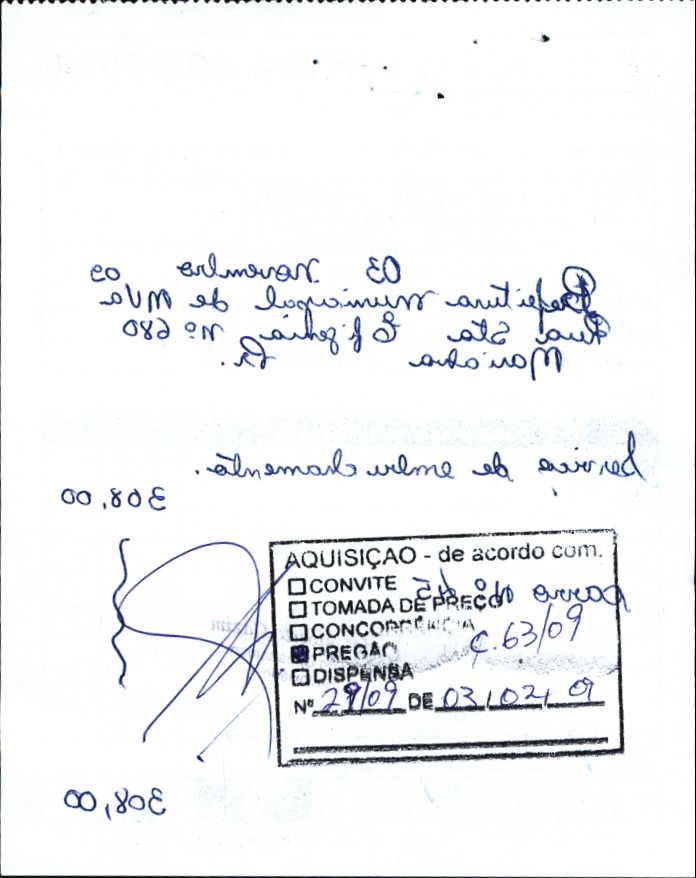 03 Novembro 09
Prefeitura municipal de MVa
Rua Sta Efigenia Nº 680
Marialva Pr.
Servico de embuchamento.
308,00
AQUISIÇAO - de acordo com.
CONVITE
carro Nº 45
TOMADA DE PREÇO
CONCORRÊNCIA
C.63/09
PREGÃO
DISPENSA
Nº 29/09 DE 03/02/09
308,00